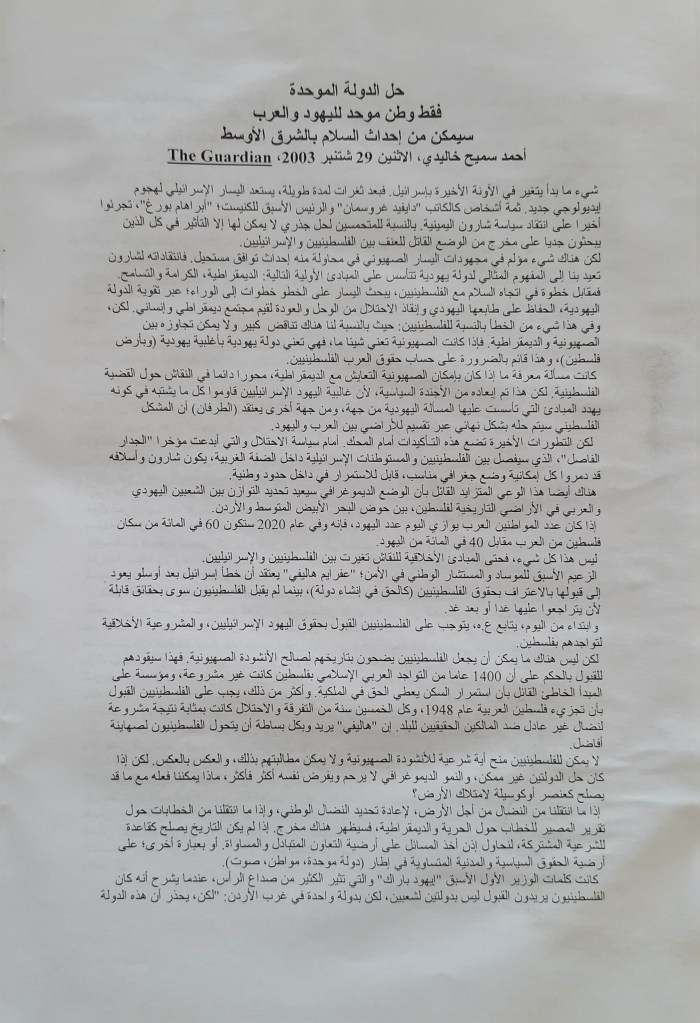 حل الدولة الموحدة
فقط وطن موحد لليهود والعرب
سيمكن من إحداث السلام بالشرق الأوسط
أحمد سميح خاليدي، الاثنين 29 شتنبر 2003، The Guardian
شيء ما بدأ يتغير في الآونة الأخيرة بإسرائيل. فبعد ثغرات لمدة طويلة، يستعد اليسار الإسرائيلي لهجوم
إيديولوجي جديد. ثمة أشخاص كالكاتب "دايفيد غروسمان" والرئيس الأسبق للكنيست؛ "أبراهام بورغ"، تجرئوا
أخيرا على انتقاد سياسة شارون اليمينية. بالنسبة للمتحمسين لحل جذري لا يمكن لها إلا التأثير في كل الذين
يبحثون جديا على مخرج من الوضع القاتل للعنف بين الفلسطينيين والإسرائيليين.
لكن هناك شيء مؤلم في مجهودات اليسار الصهيوني في محاولة منه إحداث توافق مستحيل. فانتقاداته لشارون
تعيد بنا إلى المفهوم المثالي لدولة يهودية تتأسس على المبادئ الأولية التالية: الديمقراطية، الكرامة والتسامح.
فمقابل خطوة في اتجاه السلام مع الفلسطينيين، يبحث اليسار على الخطو خطوات إلى الوراء؛ عبر تقوية الدولة
اليهودية، الحفاظ على طابعها اليهودي وإنقاذ الاحتلال من الوحل والعودة لقيم مجتمع ديمقراطي وإنساني. لكن،
وفي هذا شيء من الخطأ بالنسبة للفلسطينيين: حيث بالنسبة لنا هناك تناقض كبير ولا يمكن تجاوزه بين
الصهيونية والديمقراطية. فإذا كانت الصهيونية تعني شيئا ما، فهي تعني دولة يهودية بأغلبية يهودية (وبأرض
فلسطين)، وهذا قائم بالضرورة على حساب حقوق العرب الفلسطينيين.
كانت مسألة معرفة ما إذا كان بإمكان الصهيونية التعايش مع الديمقراطية، محورا دائما في النقاش حول القضية
الفلسطينية. لكن هذا تم إبعاده من الأجندة السياسية، لأن غالبية اليهود الإسرائيليين قاوموا كل ما يشتبه في كونه
يهدد المبادئ التي تأسست عليها المسألة اليهودية من جهة، ومن جهة أخرى يعتقد (الطرفان) أن المشكل
الفلسطيني سيتم حله بشكل نهائي عبر تقسيم للأراضي بين العرب واليهود.
لكن التطورات الأخيرة تضع هذه التأكيدات أمام المحك. أمام سياسة الاحتلال والتي أبدعت مؤخرا "الجدار
الفاصل"، الذي سيفصل بين الفلسطينيين والمستوطنات الإسرائيلية داخل الضفة الغربية، يكون شارون وأسلافه
قد دمروا كل إمكانية وضع جغرافي مناسب، قابل للاستمرار في داخل حدود وطنية.
هناك أيضا هذا الوعي المتزايد القائل بأن الوضع الديموغرافي سيعيد تحديد التوازن بين الشعبين اليهودي
والعربي في الأراضي التاريخية لفلسطين، بين حوض البحر الأبيض المتوسط والأردن.
إذا كان عدد المواطنين العرب يوازي اليوم عدد اليهود، فإنه وفي عام 2020 ستكون 60 في المائة من سكان
فلسطين من العرب مقابل 40 في المائة من اليهود.
ليس هذا كل شيء، فحتى المبادئ الأخلاقية للنقاش تغيرت بين الفلسطينيين والإسرائيليين.
الزعيم الأسبق للموساد والمستشار الوطني في الأمن؛ "عفرايم هاليفي" يعتقد أن خطأ إسرائيل بعد أوسلو يعود
إلى قبولها بالاعتراف بحقوق الفلسطينيين (كالحق في إنشاء دولة)، بينما لم يقبل الفلسطينيون سوى بحقائق قابلة
لأن يتراجعوا عليها غدا أو بعد غد.
وابتداء من اليوم، يتابع ع.ه، يتوجب على الفلسطينيين القبول بحقوق اليهود الإسرائيليين، والمشروعية الأخلاقية
لتواجدهم بفلسطين.
لكن ليس هناك ما يمكن أن يجعل الفلسطينيين يضحون بتاريخهم لصالح الأنشودة الصهيونية. فهذا سيقودهم
للقبول بالحكم على أن 1400 عاما من التواجد العربي الإسلامي بفلسطين كانت غير مشروعة، ومؤسسة على
المبدأ الخاطئ القائل بأن استمرار السكن يعطي الحق في الملكية. وأكثر من ذلك، يجب على الفلسطينيين القبول
بأن تجزيء فلسطين العربية عام 1948، وكل الخمسين سنة من التفرقة والاحتلال كانت بمثابة نتيجة مشروعة
لنضال غير عادل ضد المالكين الحقيقيين للبلد. إن "هاليفي" يريد وبكل بساطة أن يتحول الفلسطينيون لصهاينة
أفاضل.
لا يمكن للفلسطينيين منح أية شرعية للأنشودة الصهيونية ولا يمكن مطالبتهم بذلك، والعكس بالعكس. لكن إذا
كان حل الدولتين غير ممكن، والنمو الديموغرافي لا يرحم ويفرض نفسه أكثر فأكثر، ماذا يمكننا فعله مع ما قد
يصلح كعنصر أوكوسيلة لامتلاك الأرض؟
إذا ما انتقلنا من النضال من أجل الأرض، لإعادة تحديد النضال الوطني، وإذا ما انتقلنا من الخطابات حول
تقرير المصير للخطاب حول الحرية والديمقراطية، فسيظهر هناك مخرج. إذا لم يكن التاريخ يصلح كقاعدة
للشرعية المشتركة، لنحاول إذن أخذ المسائل على أرضية التعاون المتبادل والمساواة. أو بعبارة أخرى؛ على
أرضية الحقوق السياسية والمدنية المتساوية في إطار (دولة موحدة، مواطن، صوت).
كانت كلمات الوزير الأول الأسبق "إيهود باراك" والتي تثير الكثير من صداع الرأس، عندما يشرح أنه كان
الفلسطينيون يريدون القبول ليس بدولتين لشعبين، لكن بدولة واحدة في غرب الأردن: "لكن، يحذر أن هذه الدولة